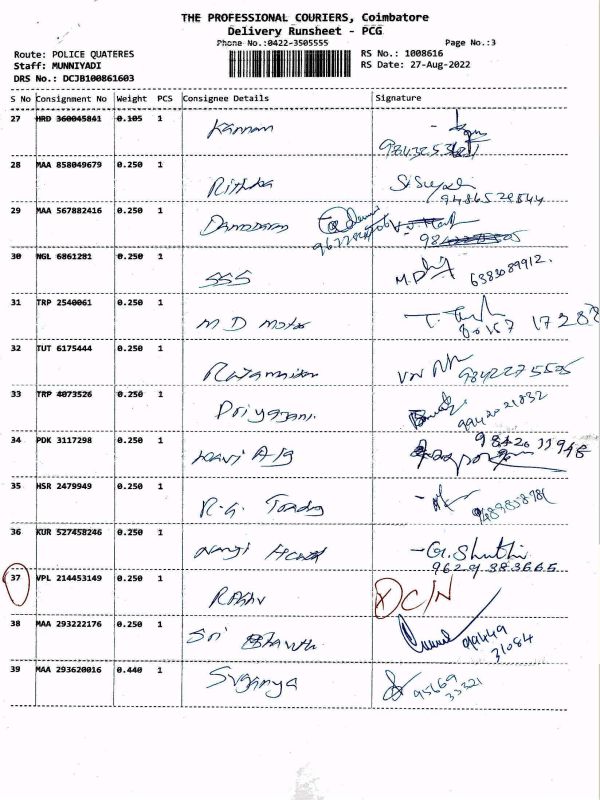 THE PROFESSIONAL COURIERS, Coimbatore
Delivery Runsheet - PCG
Phone No.:0422-3505555 Page No.:3
Route: POLICE QUATERES RS No.: 1008616
Staff: MUNNIYADI RS Date: 27-Aug-2022
DRS No.: DCJB100861603
S No Consignment No Weight PCS Consignee Details Signature
27 HRD 360045841 0.105 1 Kannan
28 MAA 858049679 0.250 1 Rithika
9486529844
29 MAA 567882416 0.250 1
30 NGL 6861281 0.250 1 SSS 6383089912.
31 TRP 2540061 0.250 1 M D Motor
17288
32 TUT 6175444 0.250 1 9842275505
33 TRP 4073526 0.250 1 Priya
9942021832
34 PDK 3117298 0.250 1 Kavi Alg 9842011948
35 HSR 2479949 0.250 1 R.G.
36 KUR 527458246 0.250 1 -G. Shuthi
9629383665
37 VPL 214453149 0.250 1 RAGAV DC/N
38 MAA 293222176 0.250 1 Sri
99449
31084
39 MAA 293620016 0.440 1 Suganya 95669
33321